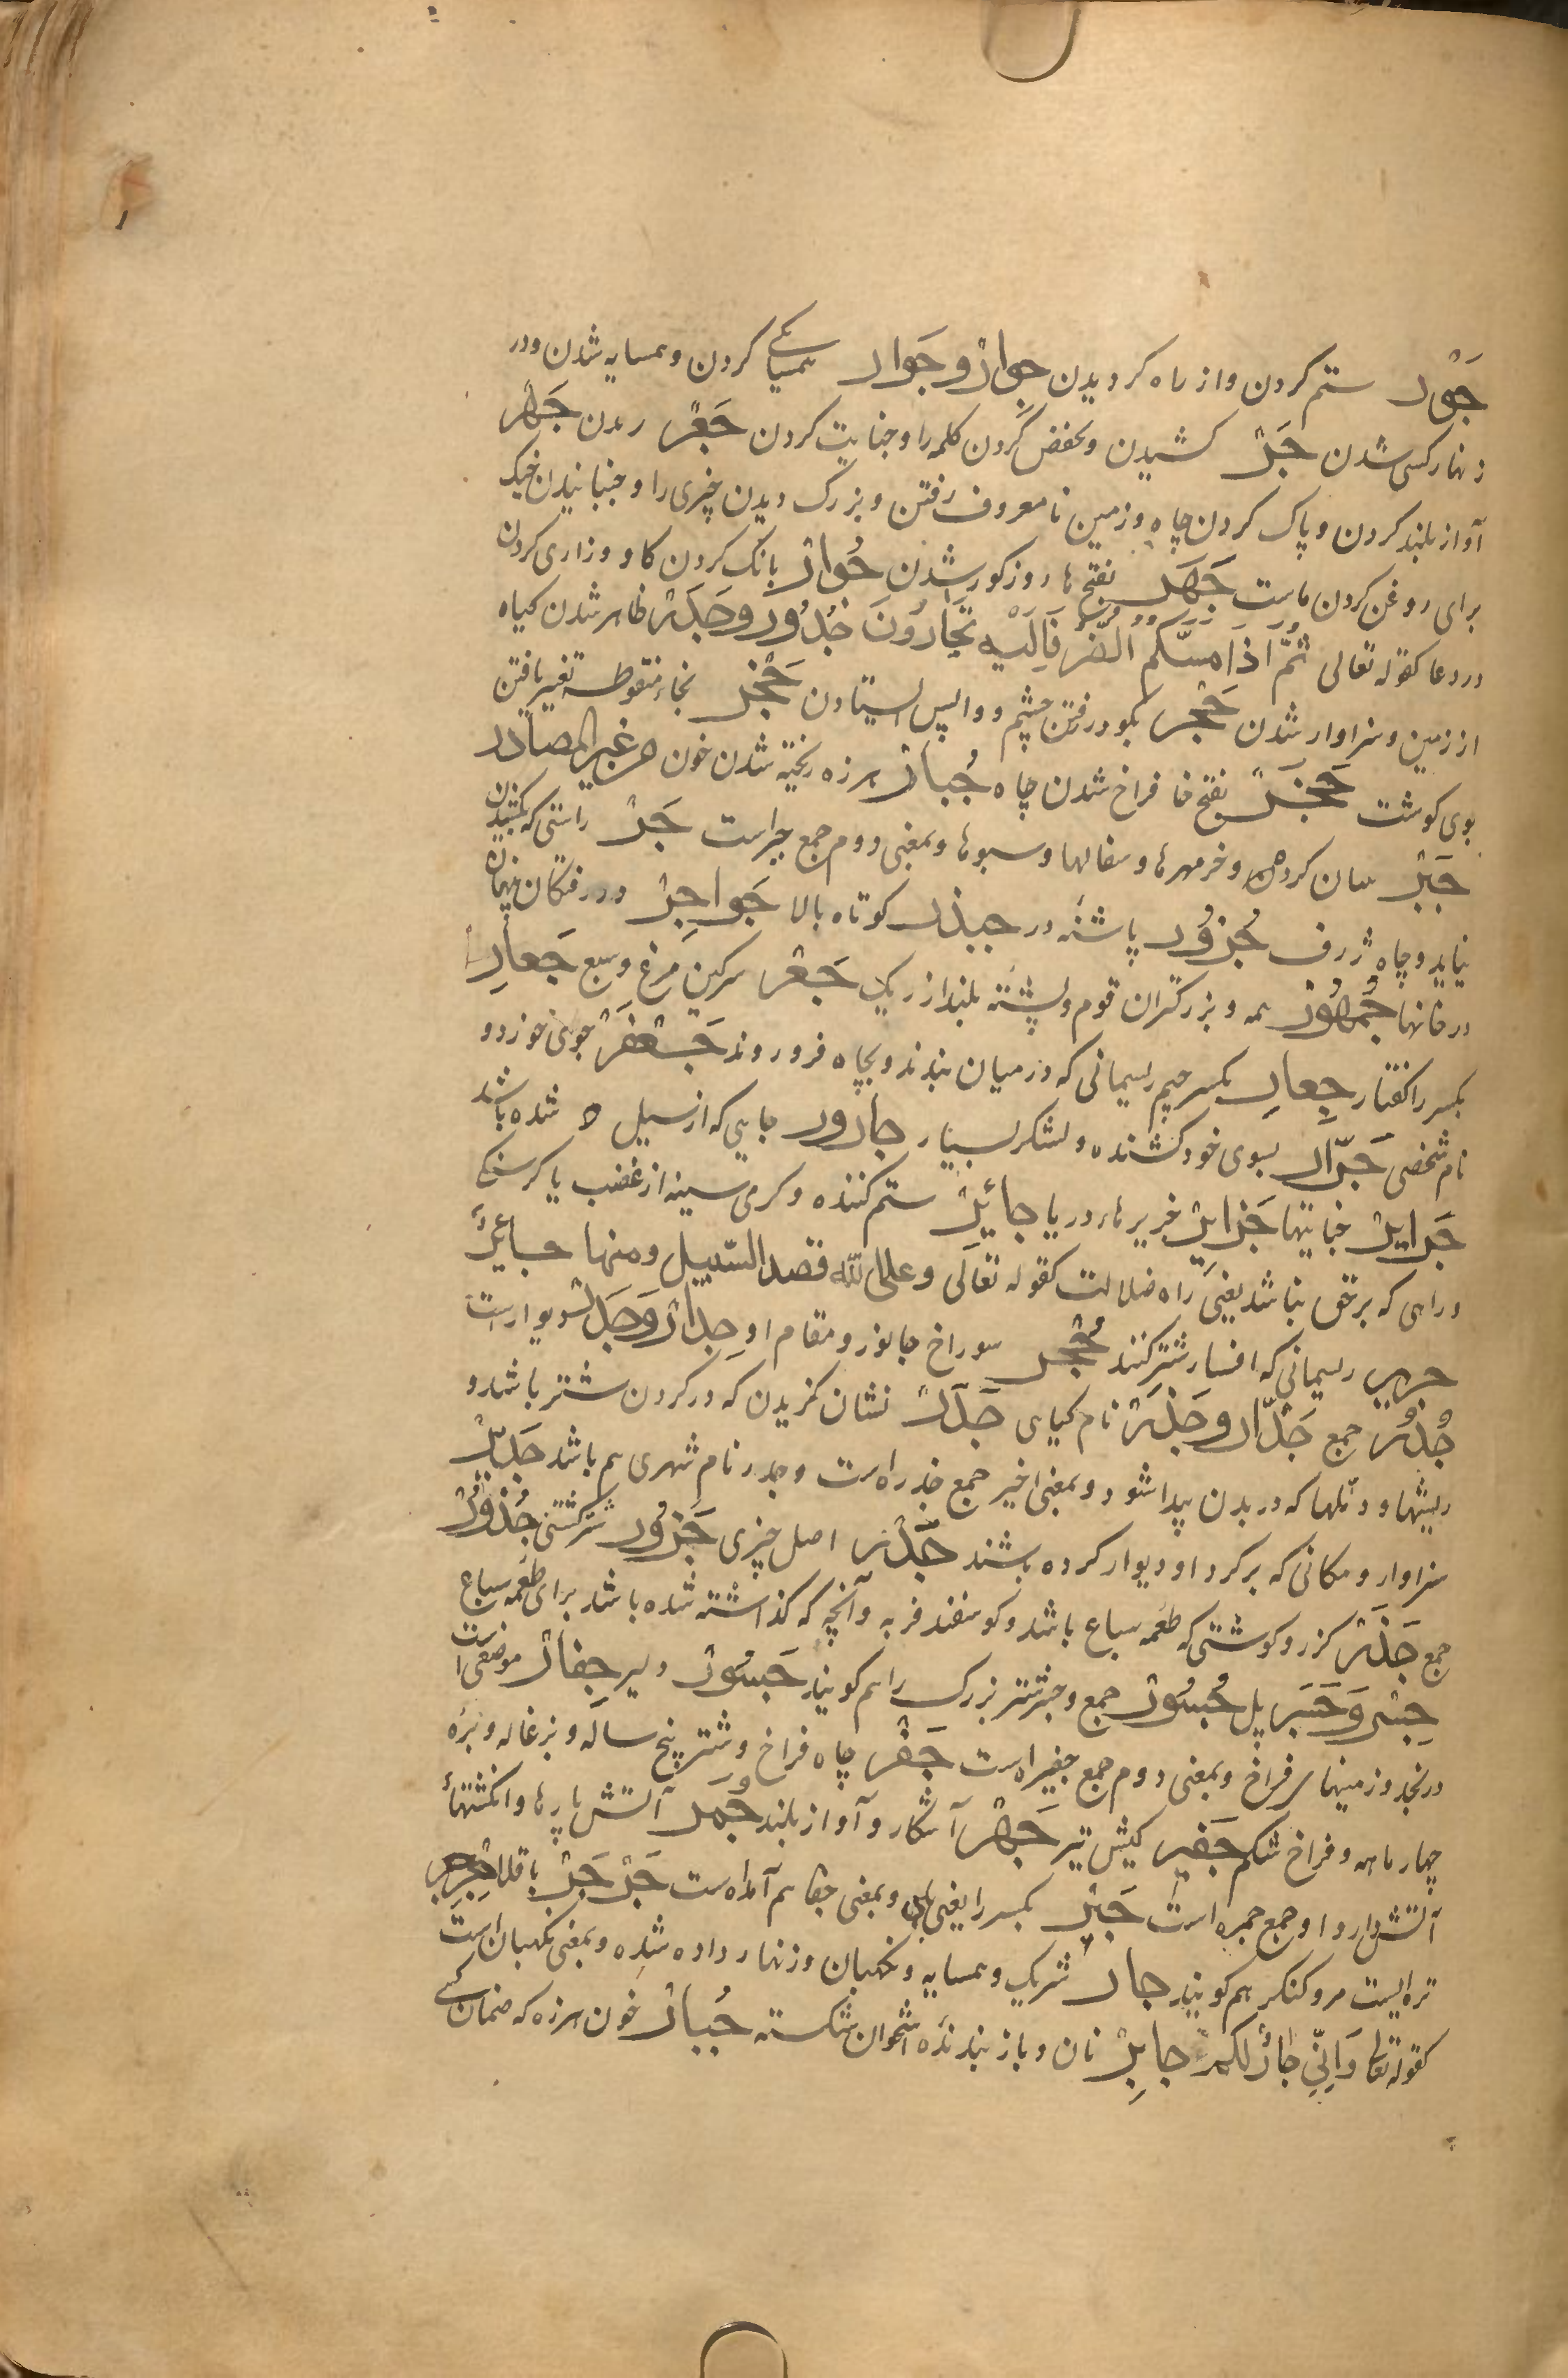 جَوْر ستم کردن و از راه کردیدن جِوارْ و جَوار همسایکے کردن و همسایه شدن و در
زنهار کسی شدن جَرّ کشیدن و بخفض کردن کلمه را و جنایت کردن جَعْر ریدن جَهْر
آواز بلند کردن و پاک کردن چاه و زمین نا معروف رفتن و بزرک دیدن چیزی را و جنبانیدن خیک
برای روغن کردن ماست جَهَر بفتح ها روز کور شدن جُوارْ بانک کردن کاو و زاری کردن
در دعا کقوله تعالی ثُمَّ اذا مَسَّکُمُ الضُّرُّ فَاِلَیْهِ تَجْارُونَ جُدُور و جَدْر ظاهر شدن کیاه
از زمین و سزاوار شدن جَحْر بکو در رفتن چشم و واپس ایستادن جَخْر بخاء منقوطه تغییر یافتن
بوی کوشت جَخَر بفتح خا فراخ شدن چاه جُبارْ هرزه ریخته شدن خون من غیر المصادر
جَرّ و خرمهرها و سفالها و سبوها و بمعنی دوم جمع جرّ است جَرْ راستی که بکشیدن
نیاید و چاه ژرف جُزُور پاشنه در جیذر کوتاه بالا جَواحِرْ در رفتکان پنهان
در خانها جُمْهُورْ همه و بزرکتران قوم و پشته بلند از ریک جَعْر سرکین مرغ و سبع جَعارِ
بکسر را کفتار جِعار بکسر جیم ریسمانی که در میان بندند و بچاه فرو روند جَعْفَرْ جوی خورد و
نام شخصی جَرّار بسوی خود کشنده و لشکر بسیار جارور جایی که از سیل شده باشد
جَرایِرْ جنایتها جَزایِرْ جزیرهاء دریا جائِرْ ستم کننده و کرمی سینه از غضب یا کرسنکے
و راهی که بر حق نباشد یعنی راه ضلالت کقوله تعالی وعلی الله قصد السّبیل ومنها جائِرٌ
جریر ریسمانی که افسار شتر کنند جُحْر سوراخ جانور و مقام او جِدارْ وَجَدْر دیوارست
جُدُر جمع جَدّار و جَدْر نام کیاهی جَدَرْ نشان کزیدن که در کردن شتر باشد و
ریشها و دنّلها که در بدن پیدا شود و بمعنی اخیر جمع جدر است و جدر نام شهری هم باشد جَدیرْ
سزاوار و مکانی که بر کرد او دیوار کرده باشند جَذْر اصل چیزی جَزُور شتر کشتنی جُذُورْ
جمع جَذَر کزر و کوشتی که طعمه سباع باشد و کوسفند فربه و آنچه که کذاشته شده باشد برای طعمه سباع
جِسْر وَ جَسْر پل جُسُورْ جمع و شتر بزرک را هم کویند جَسُورْ دلیر جِفارْ موضعی است
در نجد و زمینهای فراخ و بمعنی دوم جمع جفیر است جَفْر چاه فراخ و شتر پنج ساله و بزغاله و بره
چهار ماهه و فراخ شکم جَفیر کیش تیر جَهْر آشکار و آواز بلند جَمْر آتش پارها و انکشتهاء
آتش دارو او جمع جمره است جَیْر بکسر را یعنی بلی و بمعنی حقا هم آمده است جَرْجَرْ باقلا جِرْجیر
تره ایست مر و کنکر هم کویند جارْ شریک و همسایه و نکهبان و زنهار داده شده و بمعنی نکهبان است
کقوله تعالی وَاِنّی جارٌ لکم جابِرْ نان و باز بندنده استخوان شکسته جُبارْ خون هرزه که ضمان